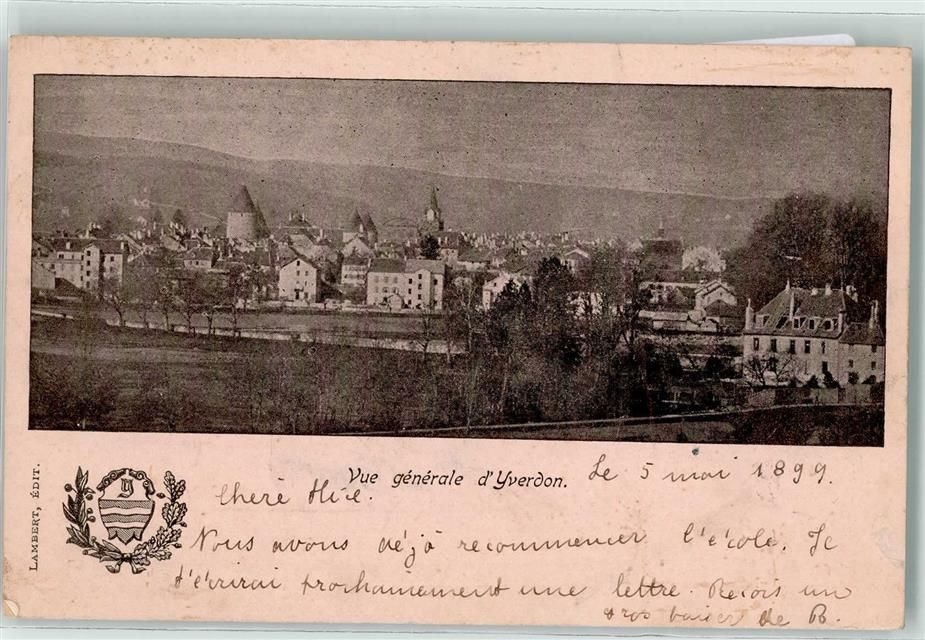 Vue générale d'Yverdon. Le 5 mai 1899.
LAMBERT, ÉDIT.
Y
Chère
Nous avons déjà recommencer l'école. Je
t'écrirai prochainement une lettre. Reçois un
gros baiser de B.